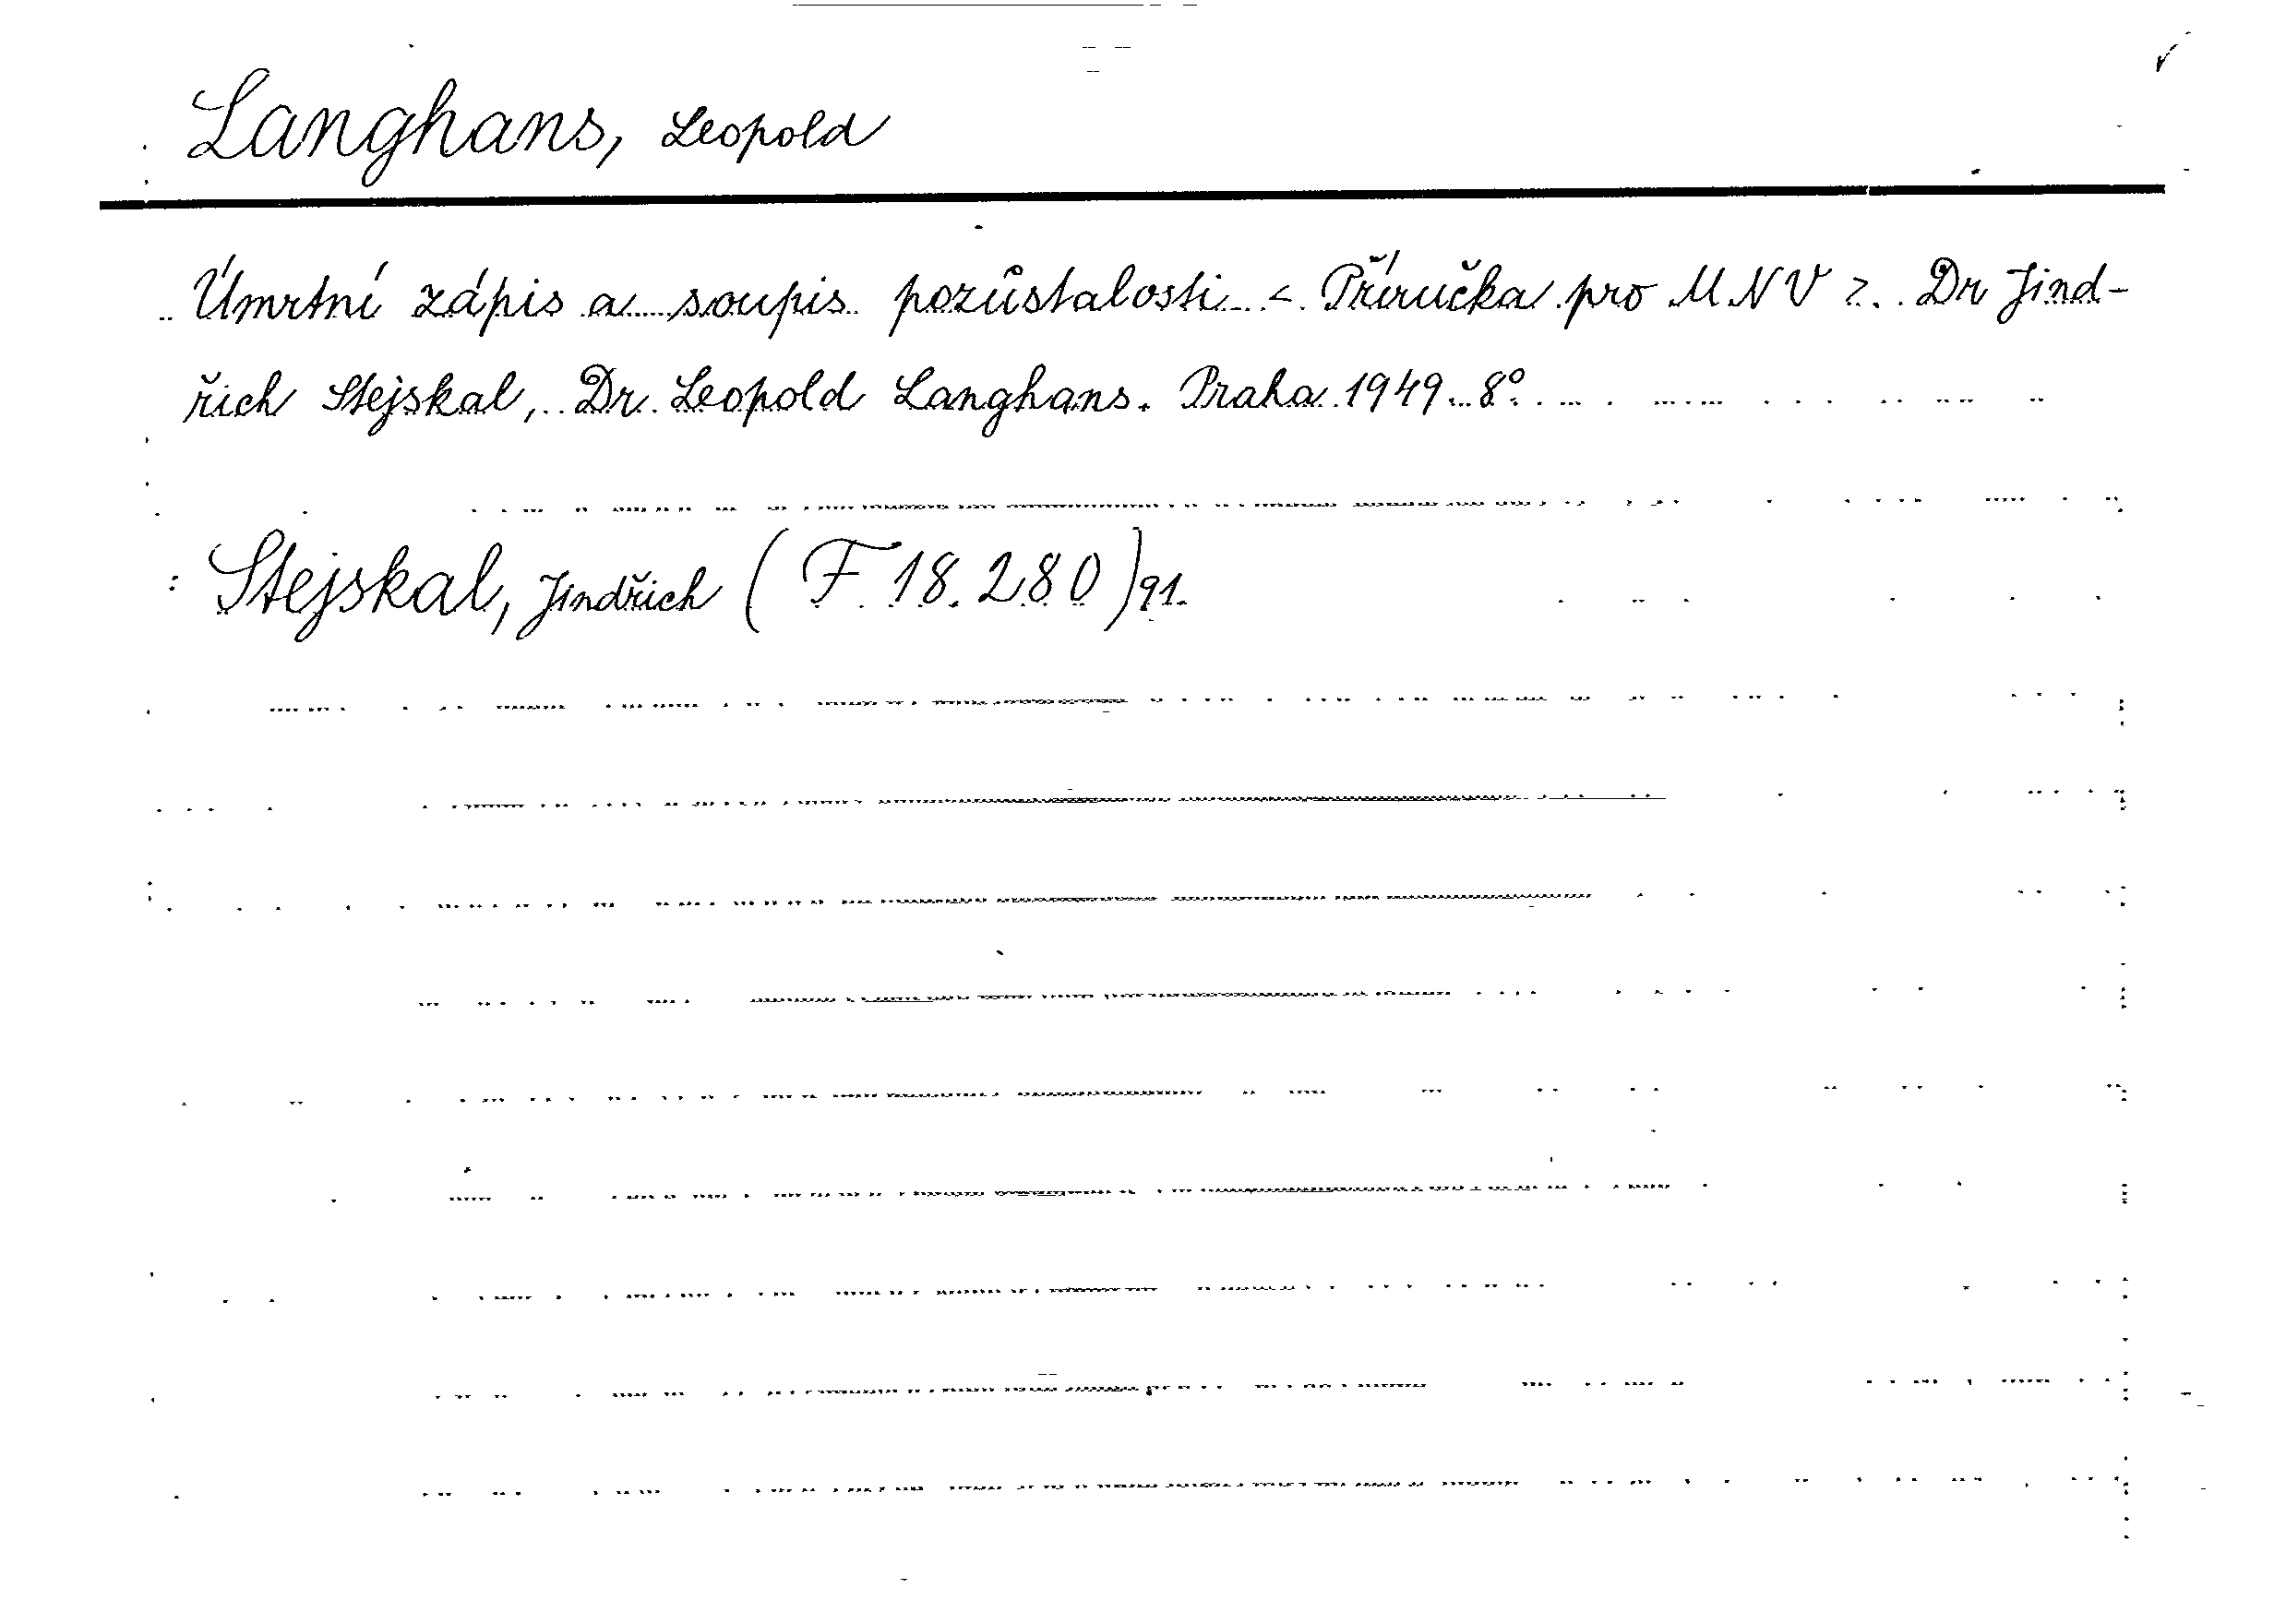 Langhans, Leopold
Úmrtní zápis a soupis pozůstalosti < Příručka pro MNV >. Dr Jind-
řich Stejskal, Dr. Leopold Langhans. Praha 1949. 8°.
Stejskal, Jindřich (F 18.280) 91.